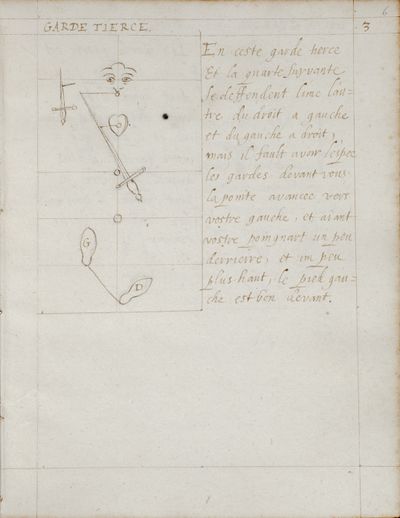 6
GARDE TIERCE.
3
En ceste garde tierce
Et la quarte suyvante
se deffendent l'une l'au=
tre du droit a gauche
et du gauche a droit,
mais il fault avoir l'espee
les gardes devant vous
la pointe avancee vers
vostre gauche, et aiant
vostre poingnart un peu
derriere, et un peu
plus haut, le pied gau=
che est bien devant.
G
D